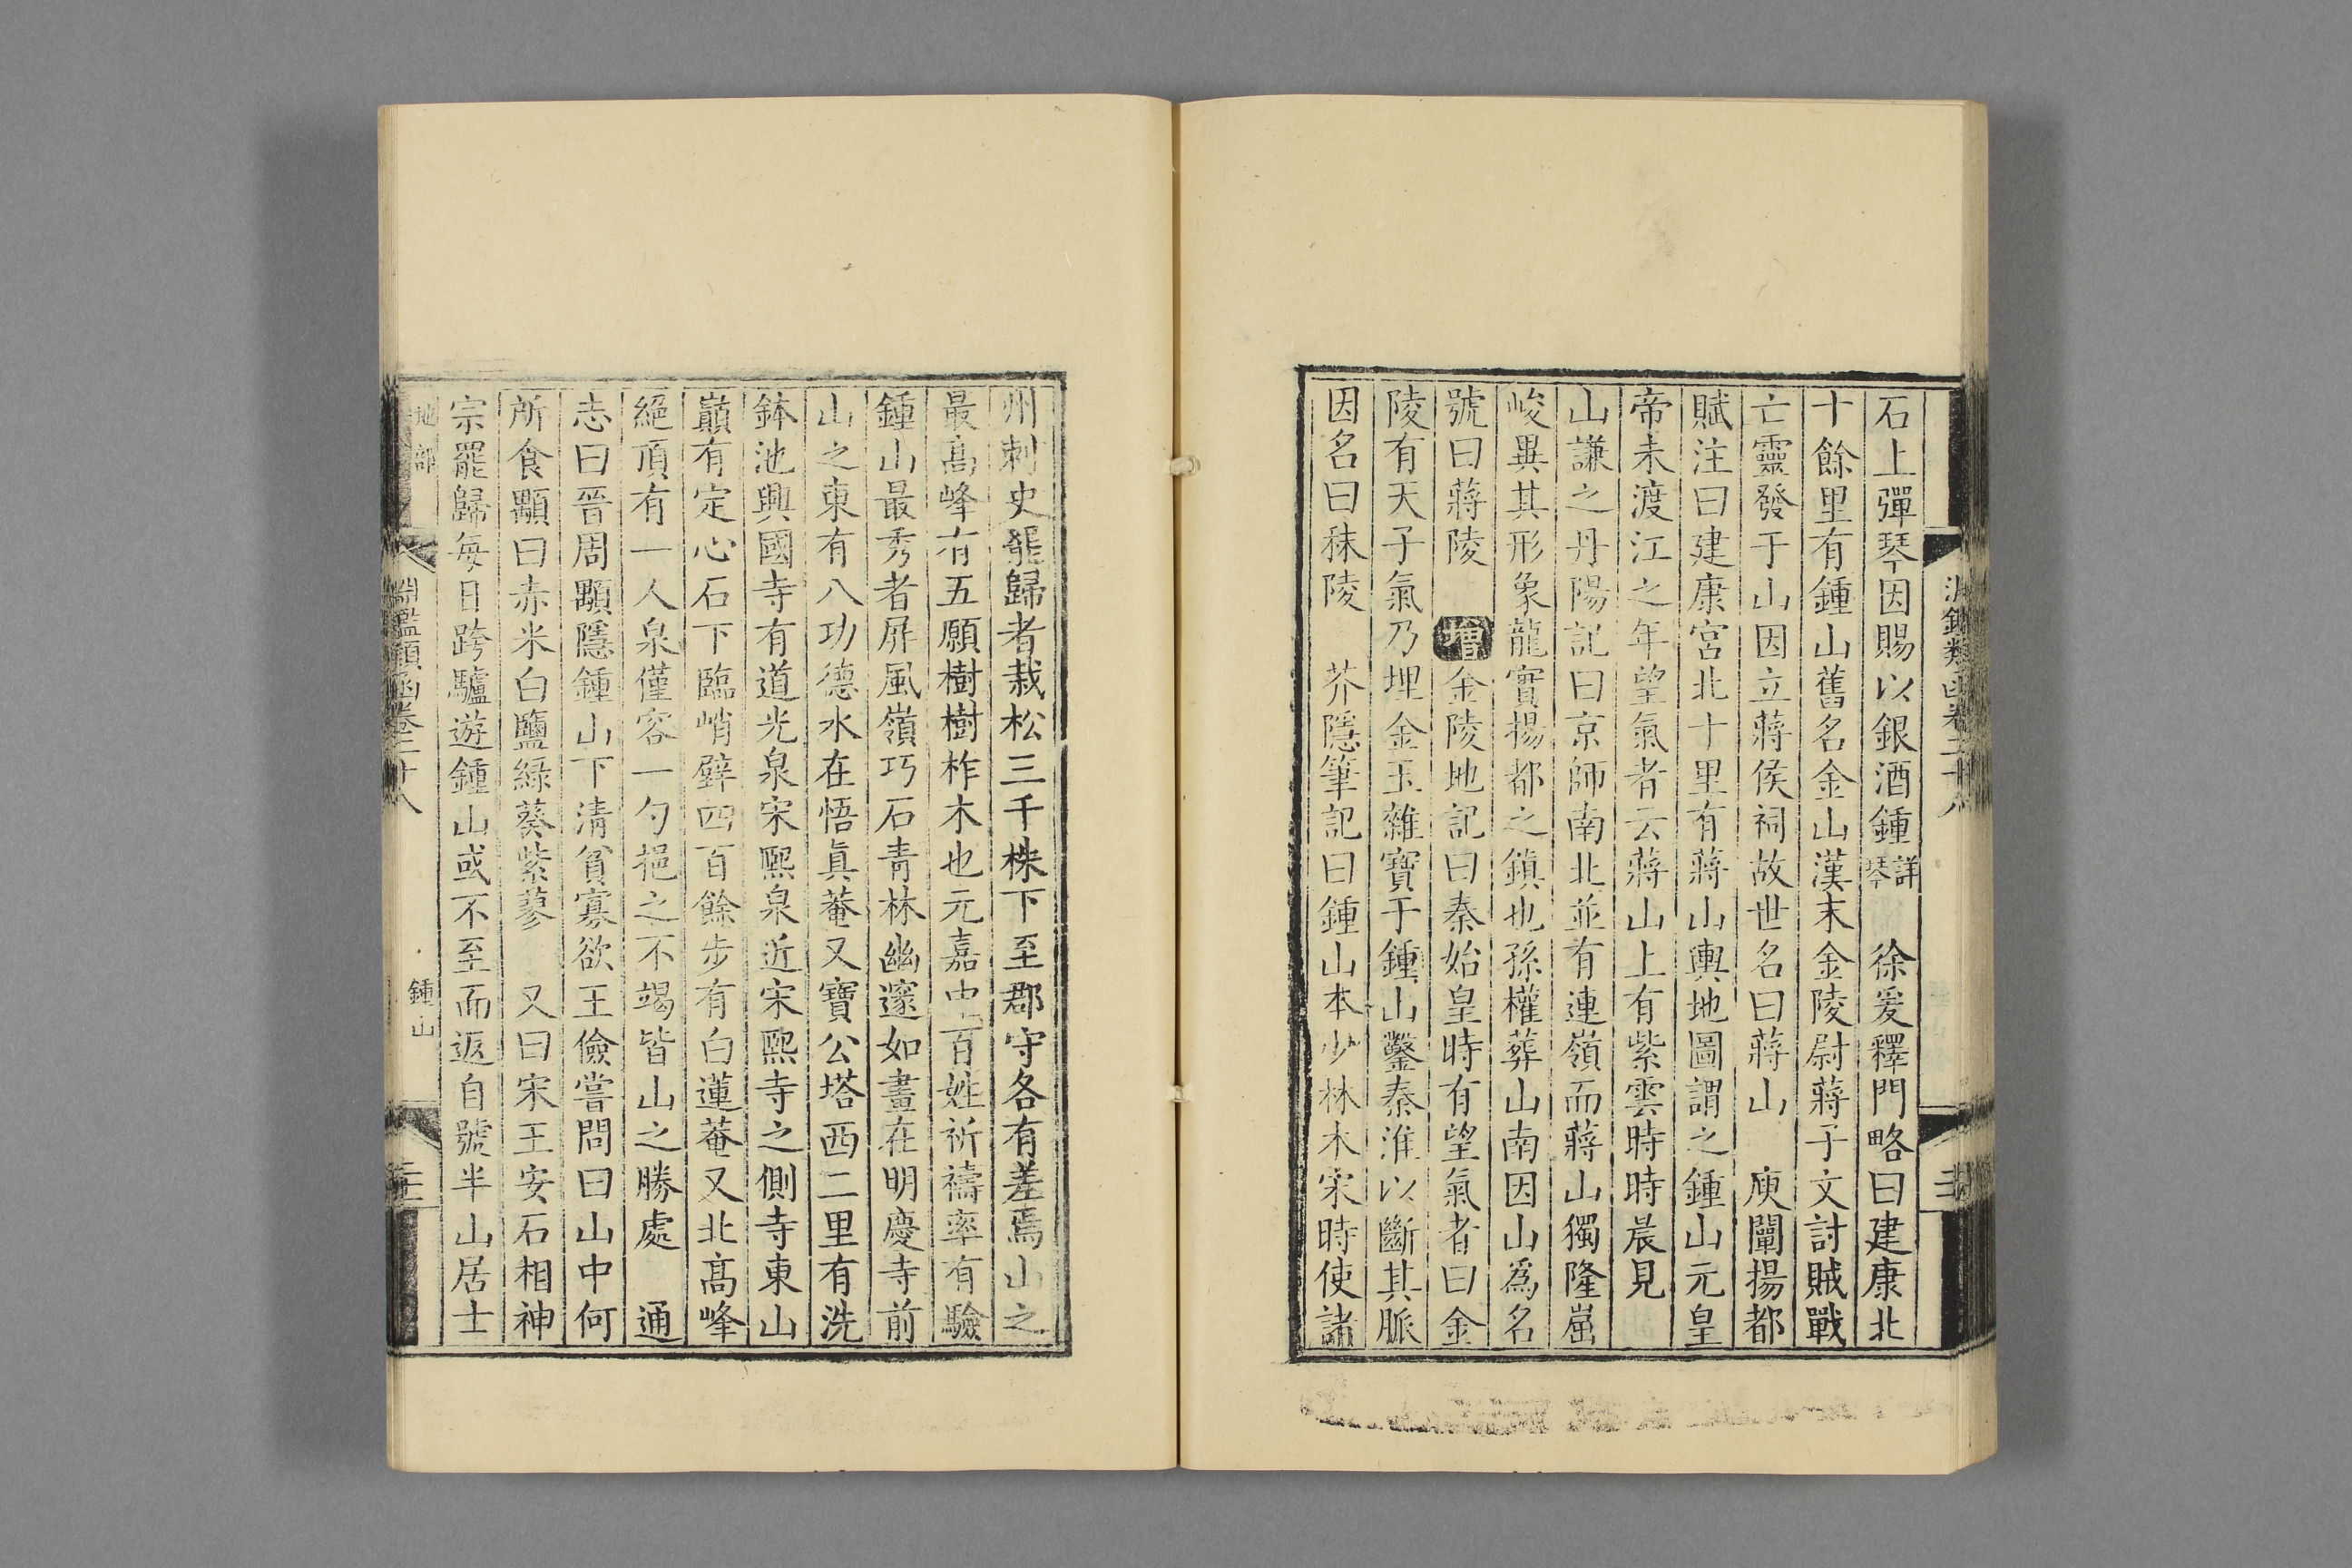 淵鑑類函卷二十八
石上彈琴因賜以銀酒鍾詳琴　徐爰釋門略曰建康北
十餘里有鍾山舊名金山漢末金陵尉蔣子文討賊戰
亡靈發于山因立蔣侯祠故世名曰蔣山　庾闡揚都
賦注曰建康宮北十里有蔣山輿地圖謂之鍾山元皇
帝未渡江之年望氣者云蔣山上有紫雲時時晨見
山謙之丹陽記曰京師南北並有連嶺而蔣山獨隆崫
峻異其形象龍實揚都之鎮也孫權葬山南因山爲名
號曰蔣陵　增金陵地記曰秦始皇時有望氣者曰金
陵有天子氣乃埋金玉雜寶于鍾山鑿秦淮以斷其脈
因名曰秣陵　芥隱筆記曰鍾山本少林木宋時使諸
州刺史罷歸者栽松三千株下至郡守各有差焉山之
最高峰有五願樹樹柞木也元嘉中百姓祈禱率有驗
鍾山最秀者屛風嶺巧石青林幽邃如畫在明慶寺前
山之東有八功德水在悟眞菴又寶公塔西二里有洗
鉢池興國寺有道光泉宋熙泉近宋熙寺之側寺東山
巔有定心石下臨峭壁四百餘步有白蓮菴又北高峰
絕頂有一人泉僅容一勺挹之不竭皆山之勝處　通
志曰晉周顒隱鍾山下清貧寡欲王儉嘗問曰山中何
所食顒曰赤米白鹽綠葵紫蓼　又曰宋王安石相神
宗罷歸每日跨驢遊鍾山或不至而返自號半山居士
地部　淵鑑類函卷二十八　鍾山